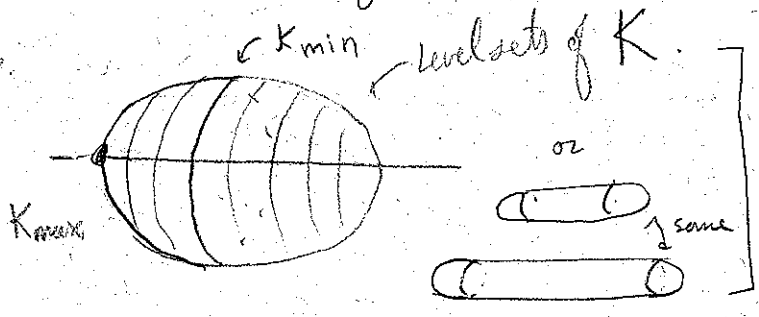 Kmin
Level sets of K.
or
Kmax
same